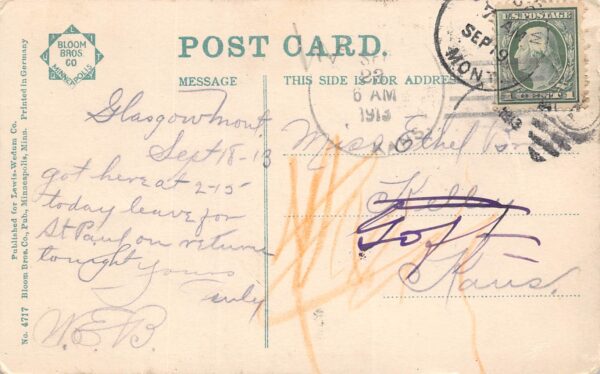 BLOOM
BROS
CO
MINNEAPOLIS
POST CARD.
MESSAGE
THIS SIDE IS FOR ADDRESS
U.S. POSTAGE
SEP 19
MONT
22
6 AM
1913
KANS.
Glasgow Mont,
Sept 18-13
got here at 2-15
today leave for
St Paul on return
tonight Yours
Truly
W.E.B.
Miss Ethel
Kelly
Goff
Kans.
No. 4717 Bloom Bros. Co., Pub., Minneapolis, Minn. Printed in Germany
Published for Lewis-Wedum Co.